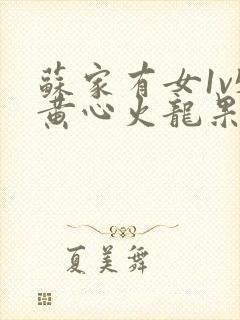 蘇家有女1v
黄心火龍果
夏美舞